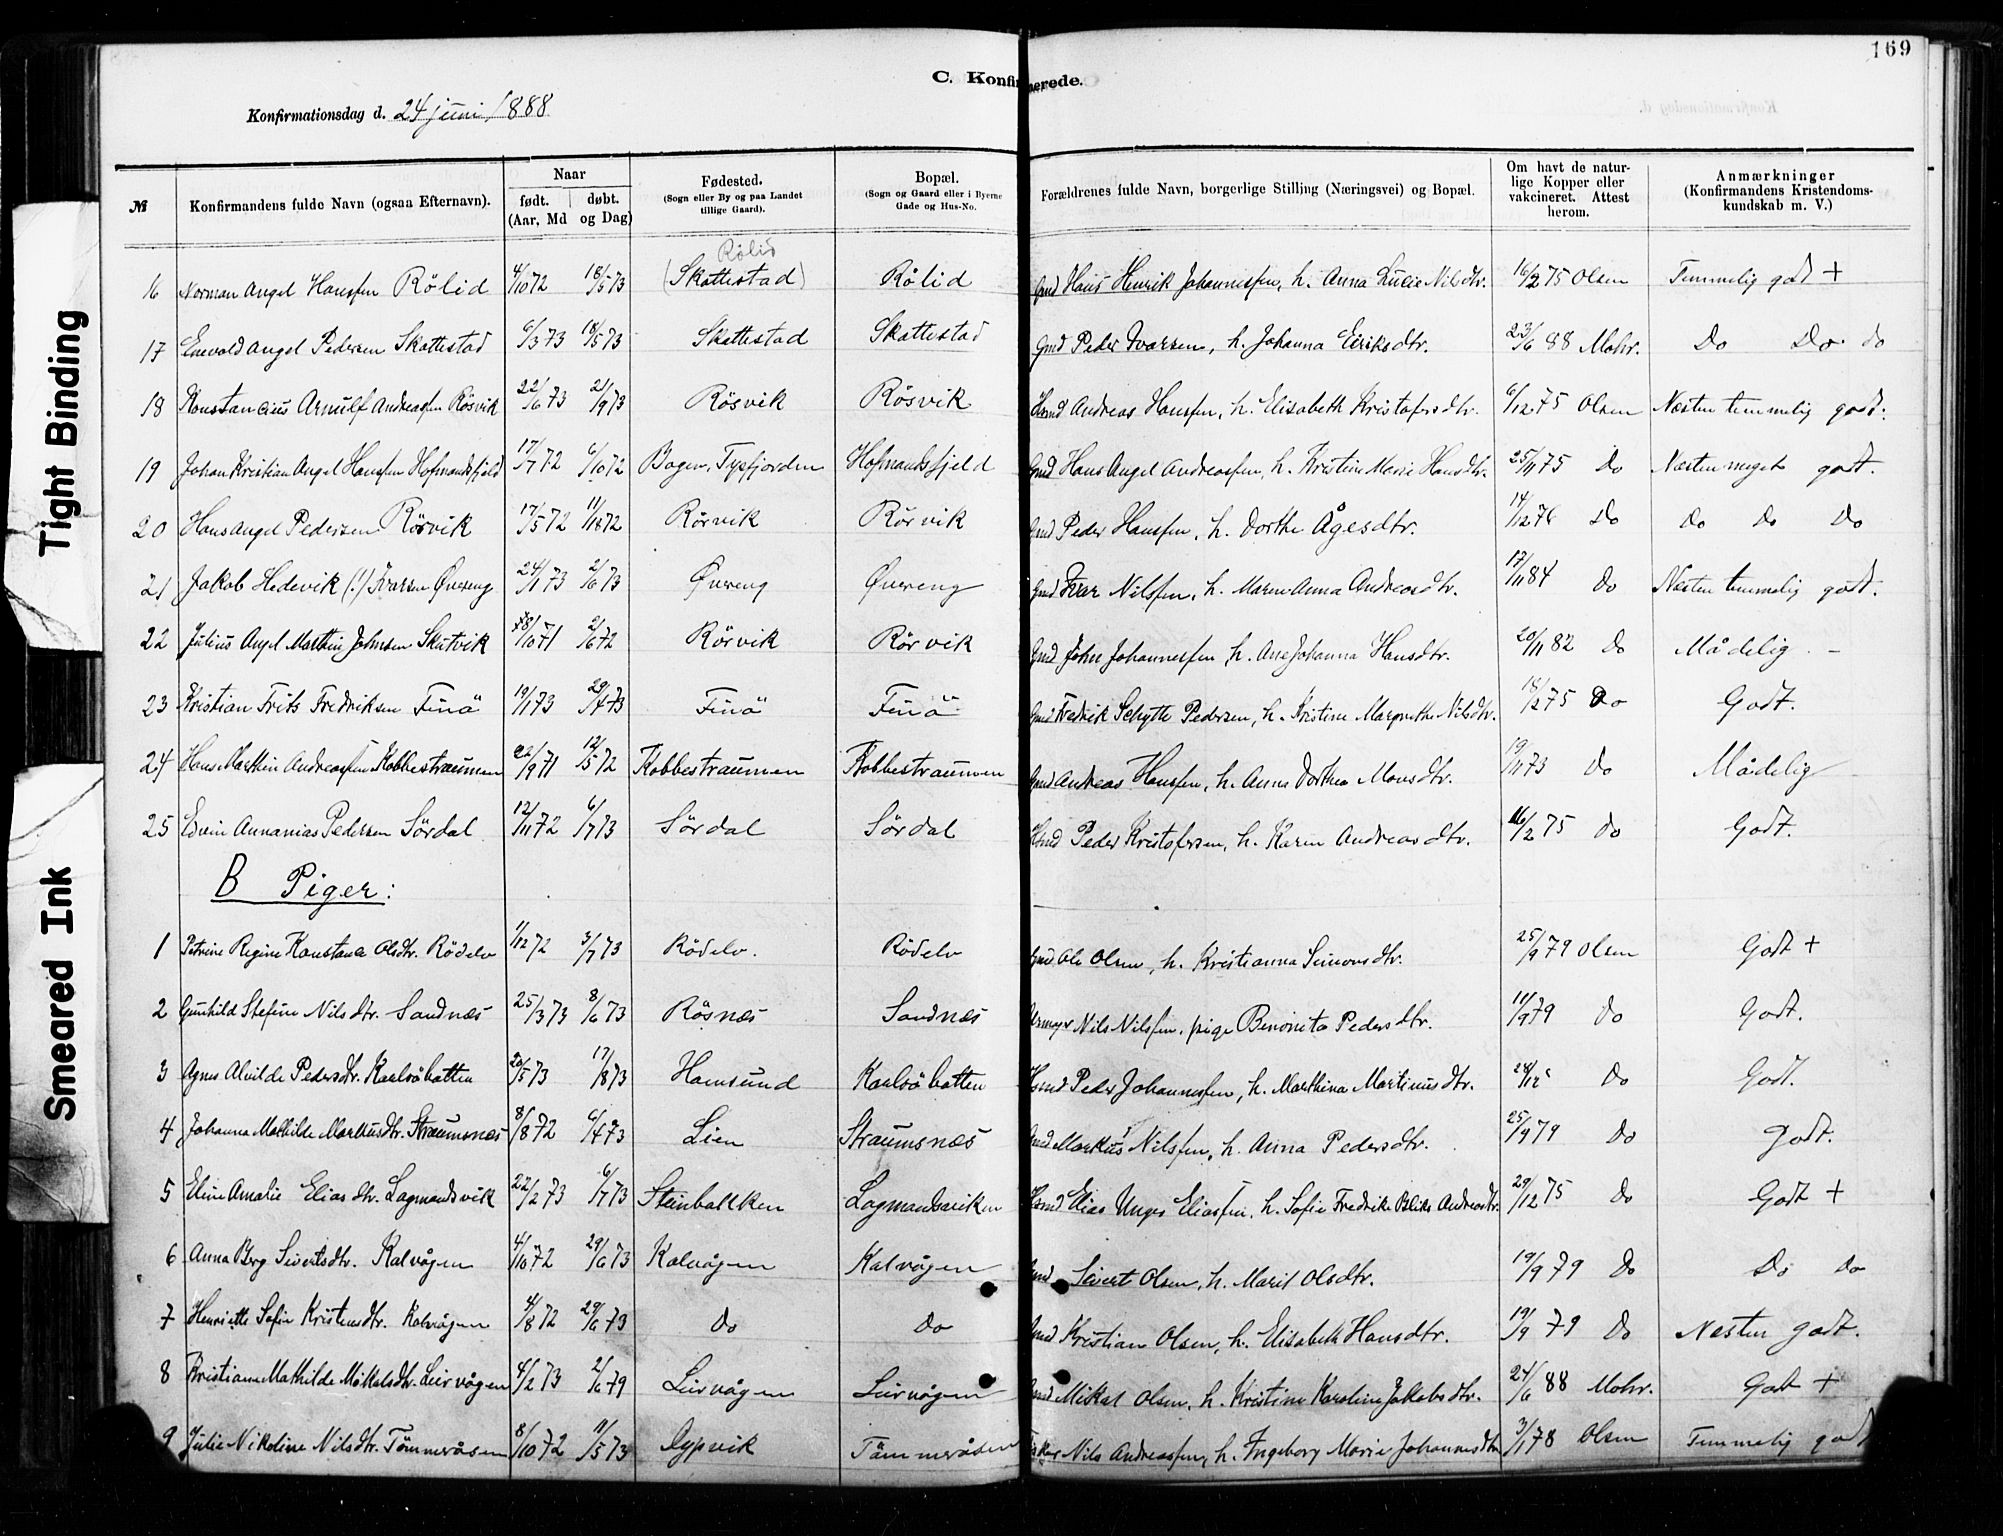 169
C. Konfirmerede.
Konfirmationsdag d. 24 juni 1888
Tight Binding
Smeared Ink
№ Konfirmandens fulde Navn (ogsaa Efternavn). Naar født. (Aar, Md døbt. og Dag) Fødested. (Sogn eller By og paa Landet tillige Gaard). Bopæl. (Sogn og Gaard eller i Byerne Gade og Hus-No. Forældrenes fulde Navn, borgerlige Stilling (Næringsvei) og Bopæl. Om havt de naturlige Kopper eller vakcineret. Attest herom. Anmærkninger (Konfirmandens Kristendomskundskab m. V.)
Rölid
16 Norman Angel Hanssen Rölid 4/10 72 18/5 73 (Skottestad) Rölid Gmd Hans Henrik Johannessen, h. Anna Lucie Nilsdtr. 16/2 75 Olsen Temmelig godt +
17 Enevold Angel Pedersen Skottestad 6/3 73 18/5 73 Skottestad Skottestad Gmd Peder Ivarsen, h. Johanna Eriksdtr. 23/6 88 Mohr. Do Do do
18 Konstancius Arnulf Andreassen Rösvik 22/6 73 21/9 73 Rösvik Rösvik Hsmd Andreas Hanssen, h. Elisabeth Kristofersdtr. 6/12 75 Olsen Næsten temmelig godt.
19 Johan Kristian Angel Hanssen Hofmandsfjeld 17/7 72 6/10 72 Bogen, Typfjorden Hofmandsfjeld Gmd Hans Angel Andreassen, h. Kristine Marie Hansdtr. 25/11 75 Do Næsten meget godt.
20 Hans Angel Pedersen Rörvik 17/5 72 11/8 72 Rörvik Rörvik Gmd Peder Hanssen, h. Dorthe Ågesdtr. 14/12 76 Do Do Do Do
21 Jakob Hedevik (!) Ivarsen Øvereng 24/1 73 2/6 73 Øvereng Øvereng Gmd Ivar Nilssen, h. Maren Anna Andreasdtr. 17/11 84 Do Næsten temmelig godt.
22 Julius Angel Marthin Johnsen Skutvik 8/10 71 2/6 72 Rörvik Rörvik Gmd John Johannessen, h. Ane Johanna Hansdtr. 20/11 82 Do Mådelig. –
23 Kristian Frits Fredriksen Finö 19/1 73 29/4 73 Finö Finö Gmd Fredrik Schytte Pedersen, h. Kristine Margrethe Nilsdtr. 18/2 75 Do Godt.
24 Hans Marthin Andreassen Kobbestraumen 22/9 71 12/5 72 Kobbestraumen Kobbestraumen Gmd Andreas Hanssen, h. Anna Dorthea Monsdtr. 19/11 73 Do Mådelig
25 Edvin Annanias Pedersen Sördal 12/11 72 6/7 73 Sördal Sördal Hsmd Peder Kristofersen, h. Karen Andreasdtr. 16/2 75 Do Godt.
B Piger:
1 Petrine Regine Konstanse Olsdtr. Rödelv 1/12 72 3/7 73 Rödelv. Rödelv Gmd. Ole Olsen, h. Kristianna Simonsdtr. 25/9 79 Olsen Godt +
2 Gunhild Stefine Nilsdtr. Sandnæs 25/3 73 8/6 73 Rösnæs Sandnæs Nils Nilssen, pige Benonita Pedersdtr. 11/9 79 Do Godt.
3 Agnes Alvilde Pedersdtr. Karlsöhatten 20/5 73 17/8 73 Hamsund Karlsöhatten Hsmd Peder Johannessen, h. Marthina Martinusdtr. Do Godt.
4 Johanna Mathilde Markusdtr. Straumsnæs 8/8 72 6/4 73 Lien Straumsnæs Gmd Markus Nilssen, h. Anna Pedersdtr. 25/9 79 Do Godt.
5 Eline Amalie Eliasdtr. Lagmandsvik 22/2 73 6/7 73 Steinbakken Lagmandsviken Hsmd Elias Unger Eliassen, h. Sofie Fredrike Bliks Andreasdtr. 29/12 75 Do Godt +
6 Anna Berg Sivertsdtr. Kalvågen 4/10 72 29/6 73 Kalvågen Kalvågen Gmd Sivert Olsen, h. Marit Olsdtr. 19/9 79 Do Do Do
7 Henriette Sofie Kristensdtr. Kalvågen 4/8 72 29/6 73 Do Do Gmd Kristian Olsen, h. Elisabeth Hansdtr. 19/9 79 Do Næsten godt.
8 Kristiane Mathilde Mikalsdtr. Leirvågen 4/2 73 2/6 79 Leirvågen Leirvågen Gmd Mikal Olsen, h. Kristine Karoline Jakobsdtr. 24/6 88 Mohr. Godt +
9 Julie Nikoline Nilsdtr. Tömmeråsen 8/10 72 11/5 73 Dypvik Tömmeråsen Nils Andreassen, h. Ingeborg Marie Johannesdtr 3/1 78 Olsen Temmelig godt